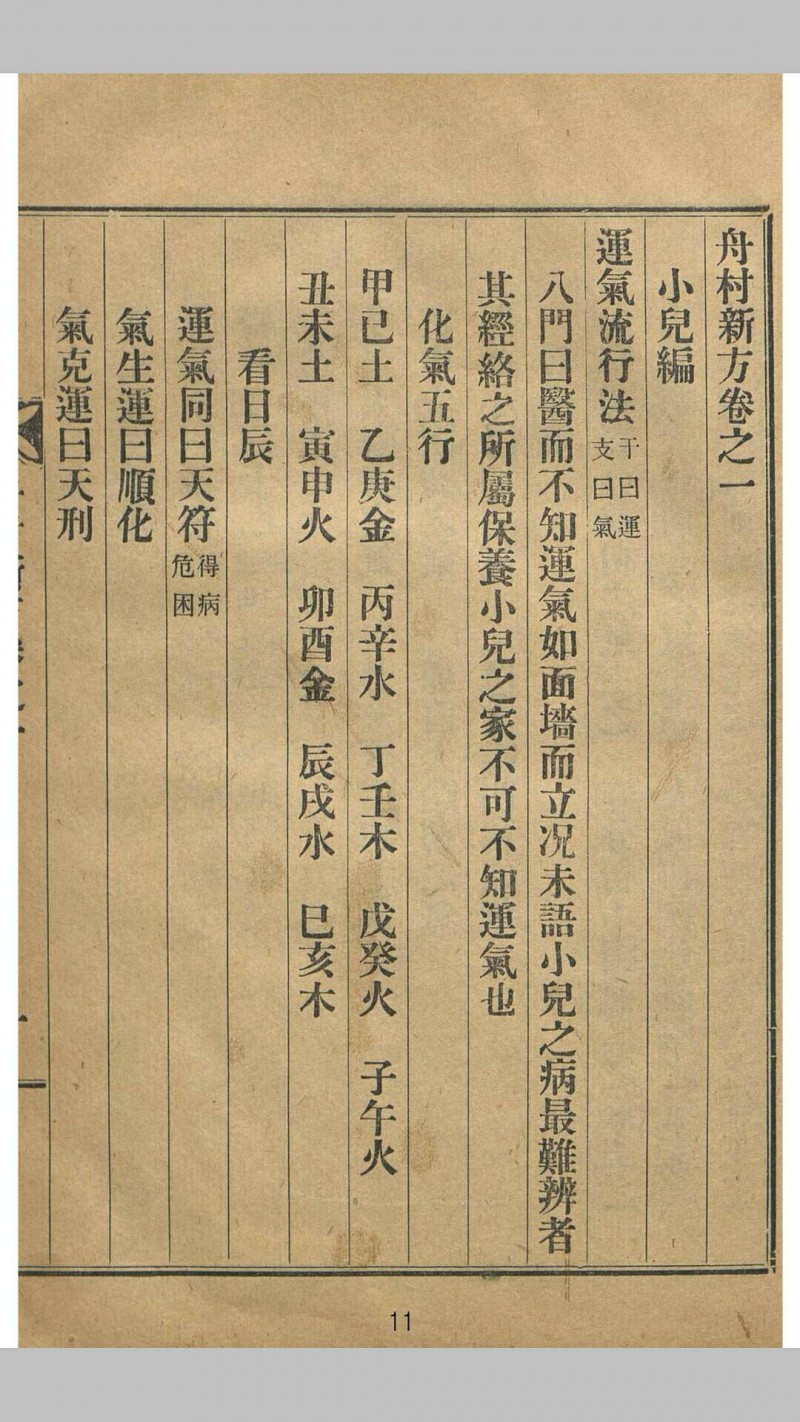 舟村新方卷之一
小兒編
運氣流行法 干曰運 支曰氣
八門曰醫而不知運氣如面墻而立况未語小兒之病最難辨者
其經絡之所屬保養小兒之家不可不知運氣也
化氣五行
甲已土 乙庚金 丙辛水 丁壬木 戊癸火 子午火
丑未土 寅申火 卯酉金 辰戌水 巳亥木
看日辰
運氣同曰天符 得病 危困
氣生運曰順化
氣克運曰天刑
11